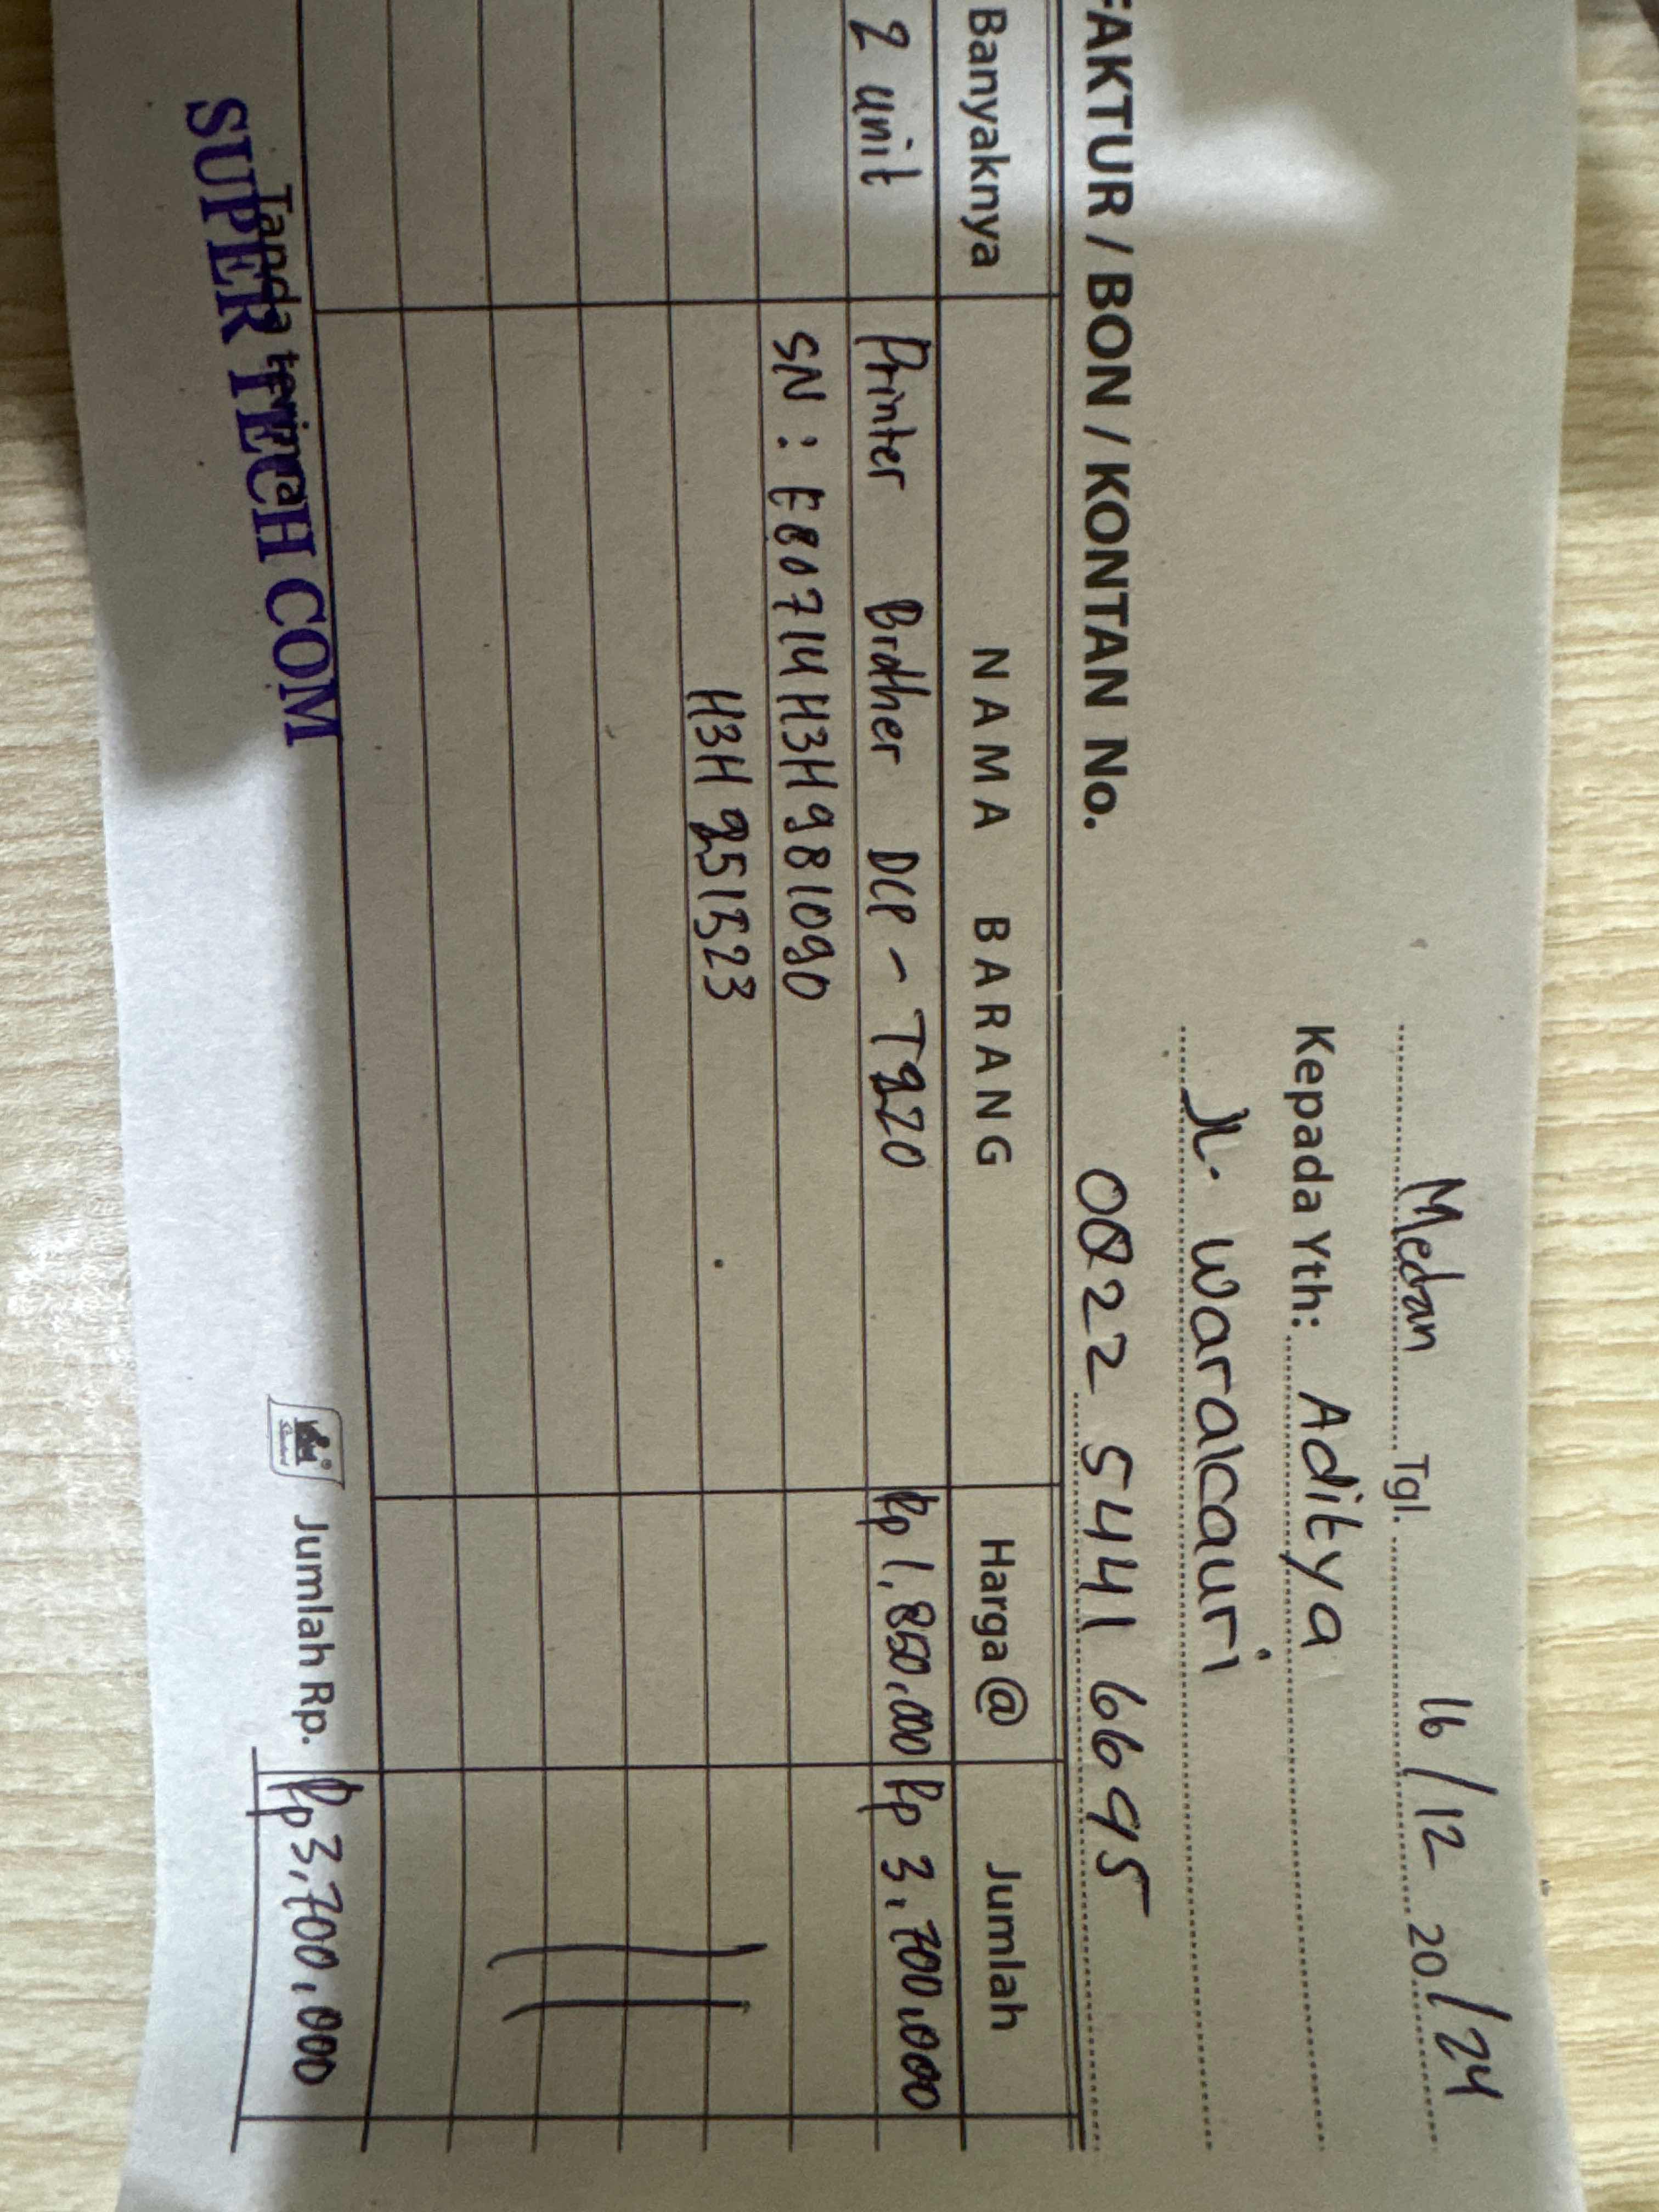 Medan Tgl. 16/12 20/24
Kepada Yth: Aditya
JL. Waralcauri
FAKTUR / BON / KONTAN No. 0022 5441 6695
Banyaknya NAMA BARANG Harga @ Jumlah
2 unit Printer Brother DCP - T220 Rp 1.850.000 Rp 3.700.000
SN : E80714H3H981090
H3H951523
Tanda terima
SUPER TECH COM
Jumlah Rp. Rp 3.700.000